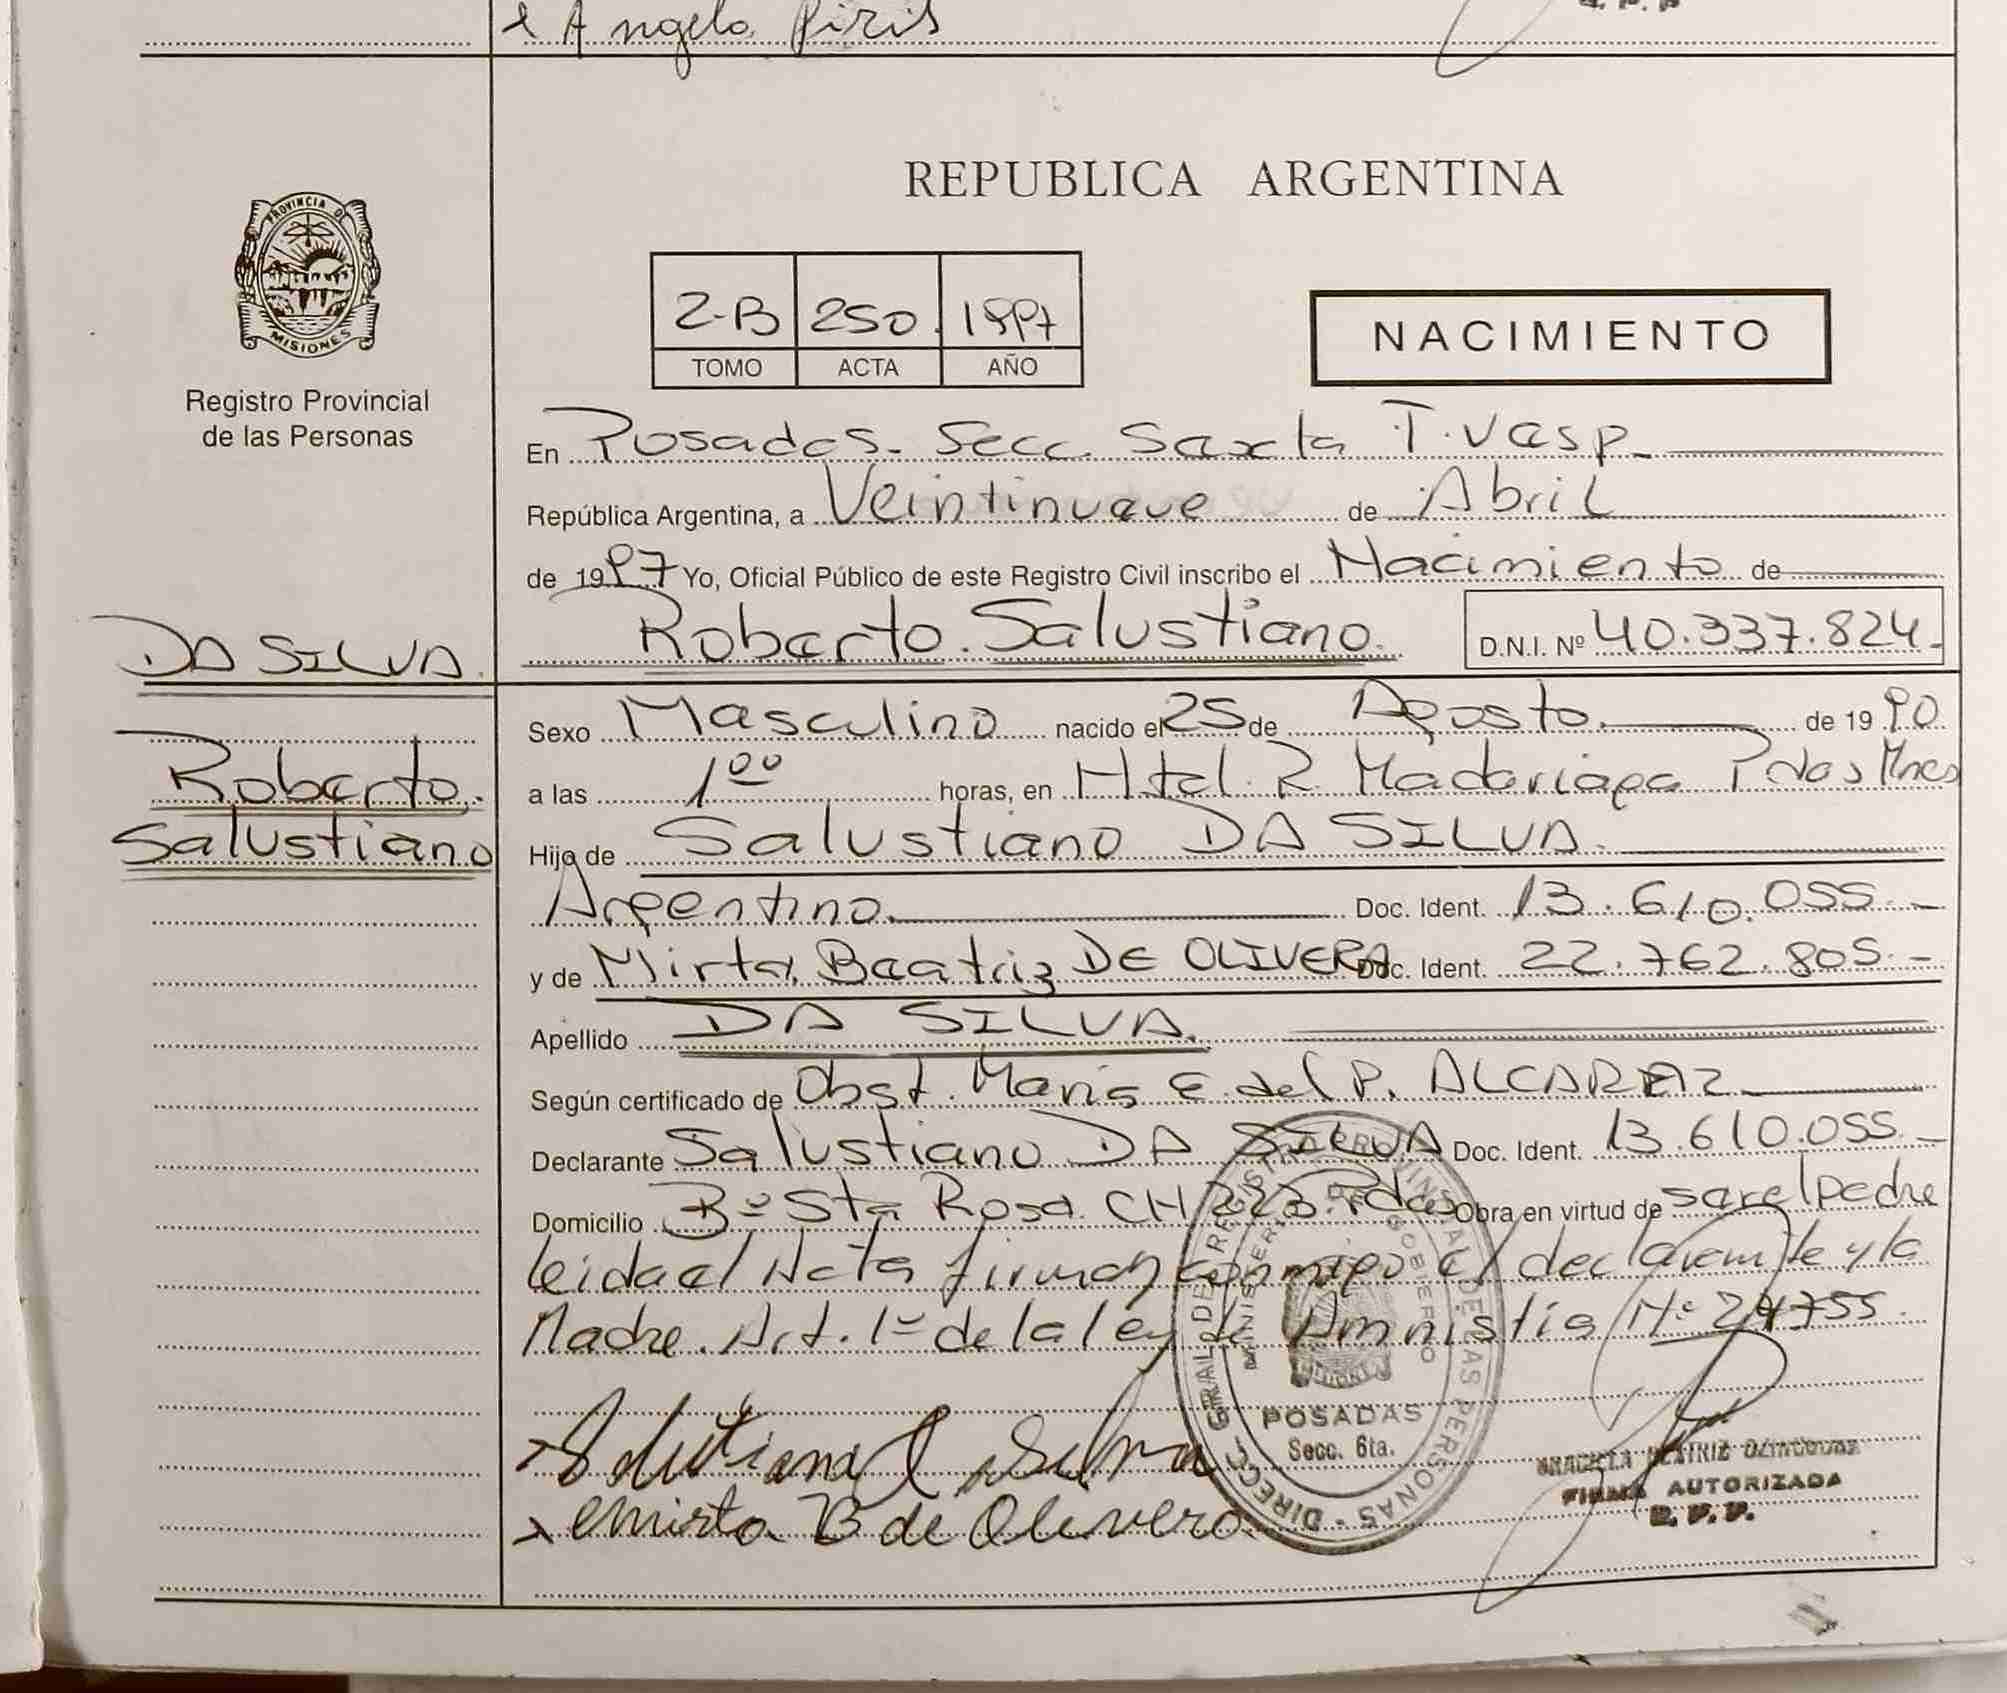 Angela Piris
PROVINCIA DE
MISIONES
Registro Provincial
de las Personas
REPUBLICA ARGENTINA
2-B 250. 1997
TOMO ACTA AÑO
NACIMIENTO
En Posadas- Secc. Sexta T. vesp.
República Argentina, a Veintinueve de Abril
de 1997 Yo, Oficial Público de este Registro Civil inscribo el Nacimiento de
Roberto. Salustiano. D.N.I. Nº 40.337.824-
DA SILVA.
Roberto.
Salustiano
Sexo Masculino nacido el 25 de Agosto. de 19 90
a las 1⁰⁰ horas, en Htal. R. Madariaga Pdas Mnes
Hijo de Salustiano DA SILVA.
Argentino. Doc. Ident. 13.610.055.-
y de Mirta Beatriz DE OLIVERA Doc. Ident. 22.762.805.-
Apellido DA SILVA.
Según certificado de Obst. Maria E. del P. ALCARAZ
Declarante Salustiano DA SILVA Doc. Ident. 13.610.055-
Domicilio Bº Sta Rosa. CH 223. Pdas Obra en virtud de ser el padre
leida el Acta firman conmigo el declarante y la
Madre. Art. 1º de la ley de Amnistia Nº 24755.
DIRECC. GRAL DE REGISTRO PROVINCIAL DE LAS PERSONAS
MINISTERIO DE GOBIERNO
POSADAS
Secc. 6ta.
Mirta B de Olivera
BEATRIZ
FIRMA AUTORIZADA
R. P. P.